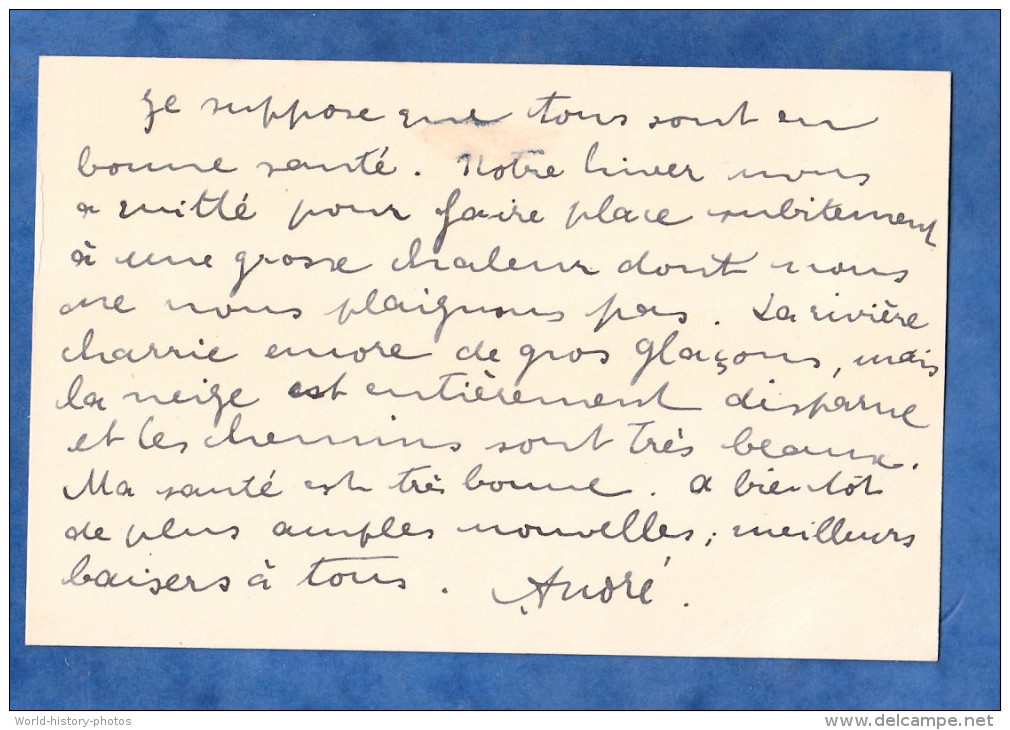 Je suppose que tous sont en
bonne santé. Notre hiver nous
a quitté pour faire place subitement
à une grosse chaleur dont nous
ne nous plaignons pas. La rivière
charrie encore de gros glaçons, mais
la neige est entièrement disparue
et les chemins sont très beaux.
Ma santé est très bonne. A bientôt
de plus amples nouvelles; meilleurs
baisers à tous. André.
World-history-photos
www.delcampe.net